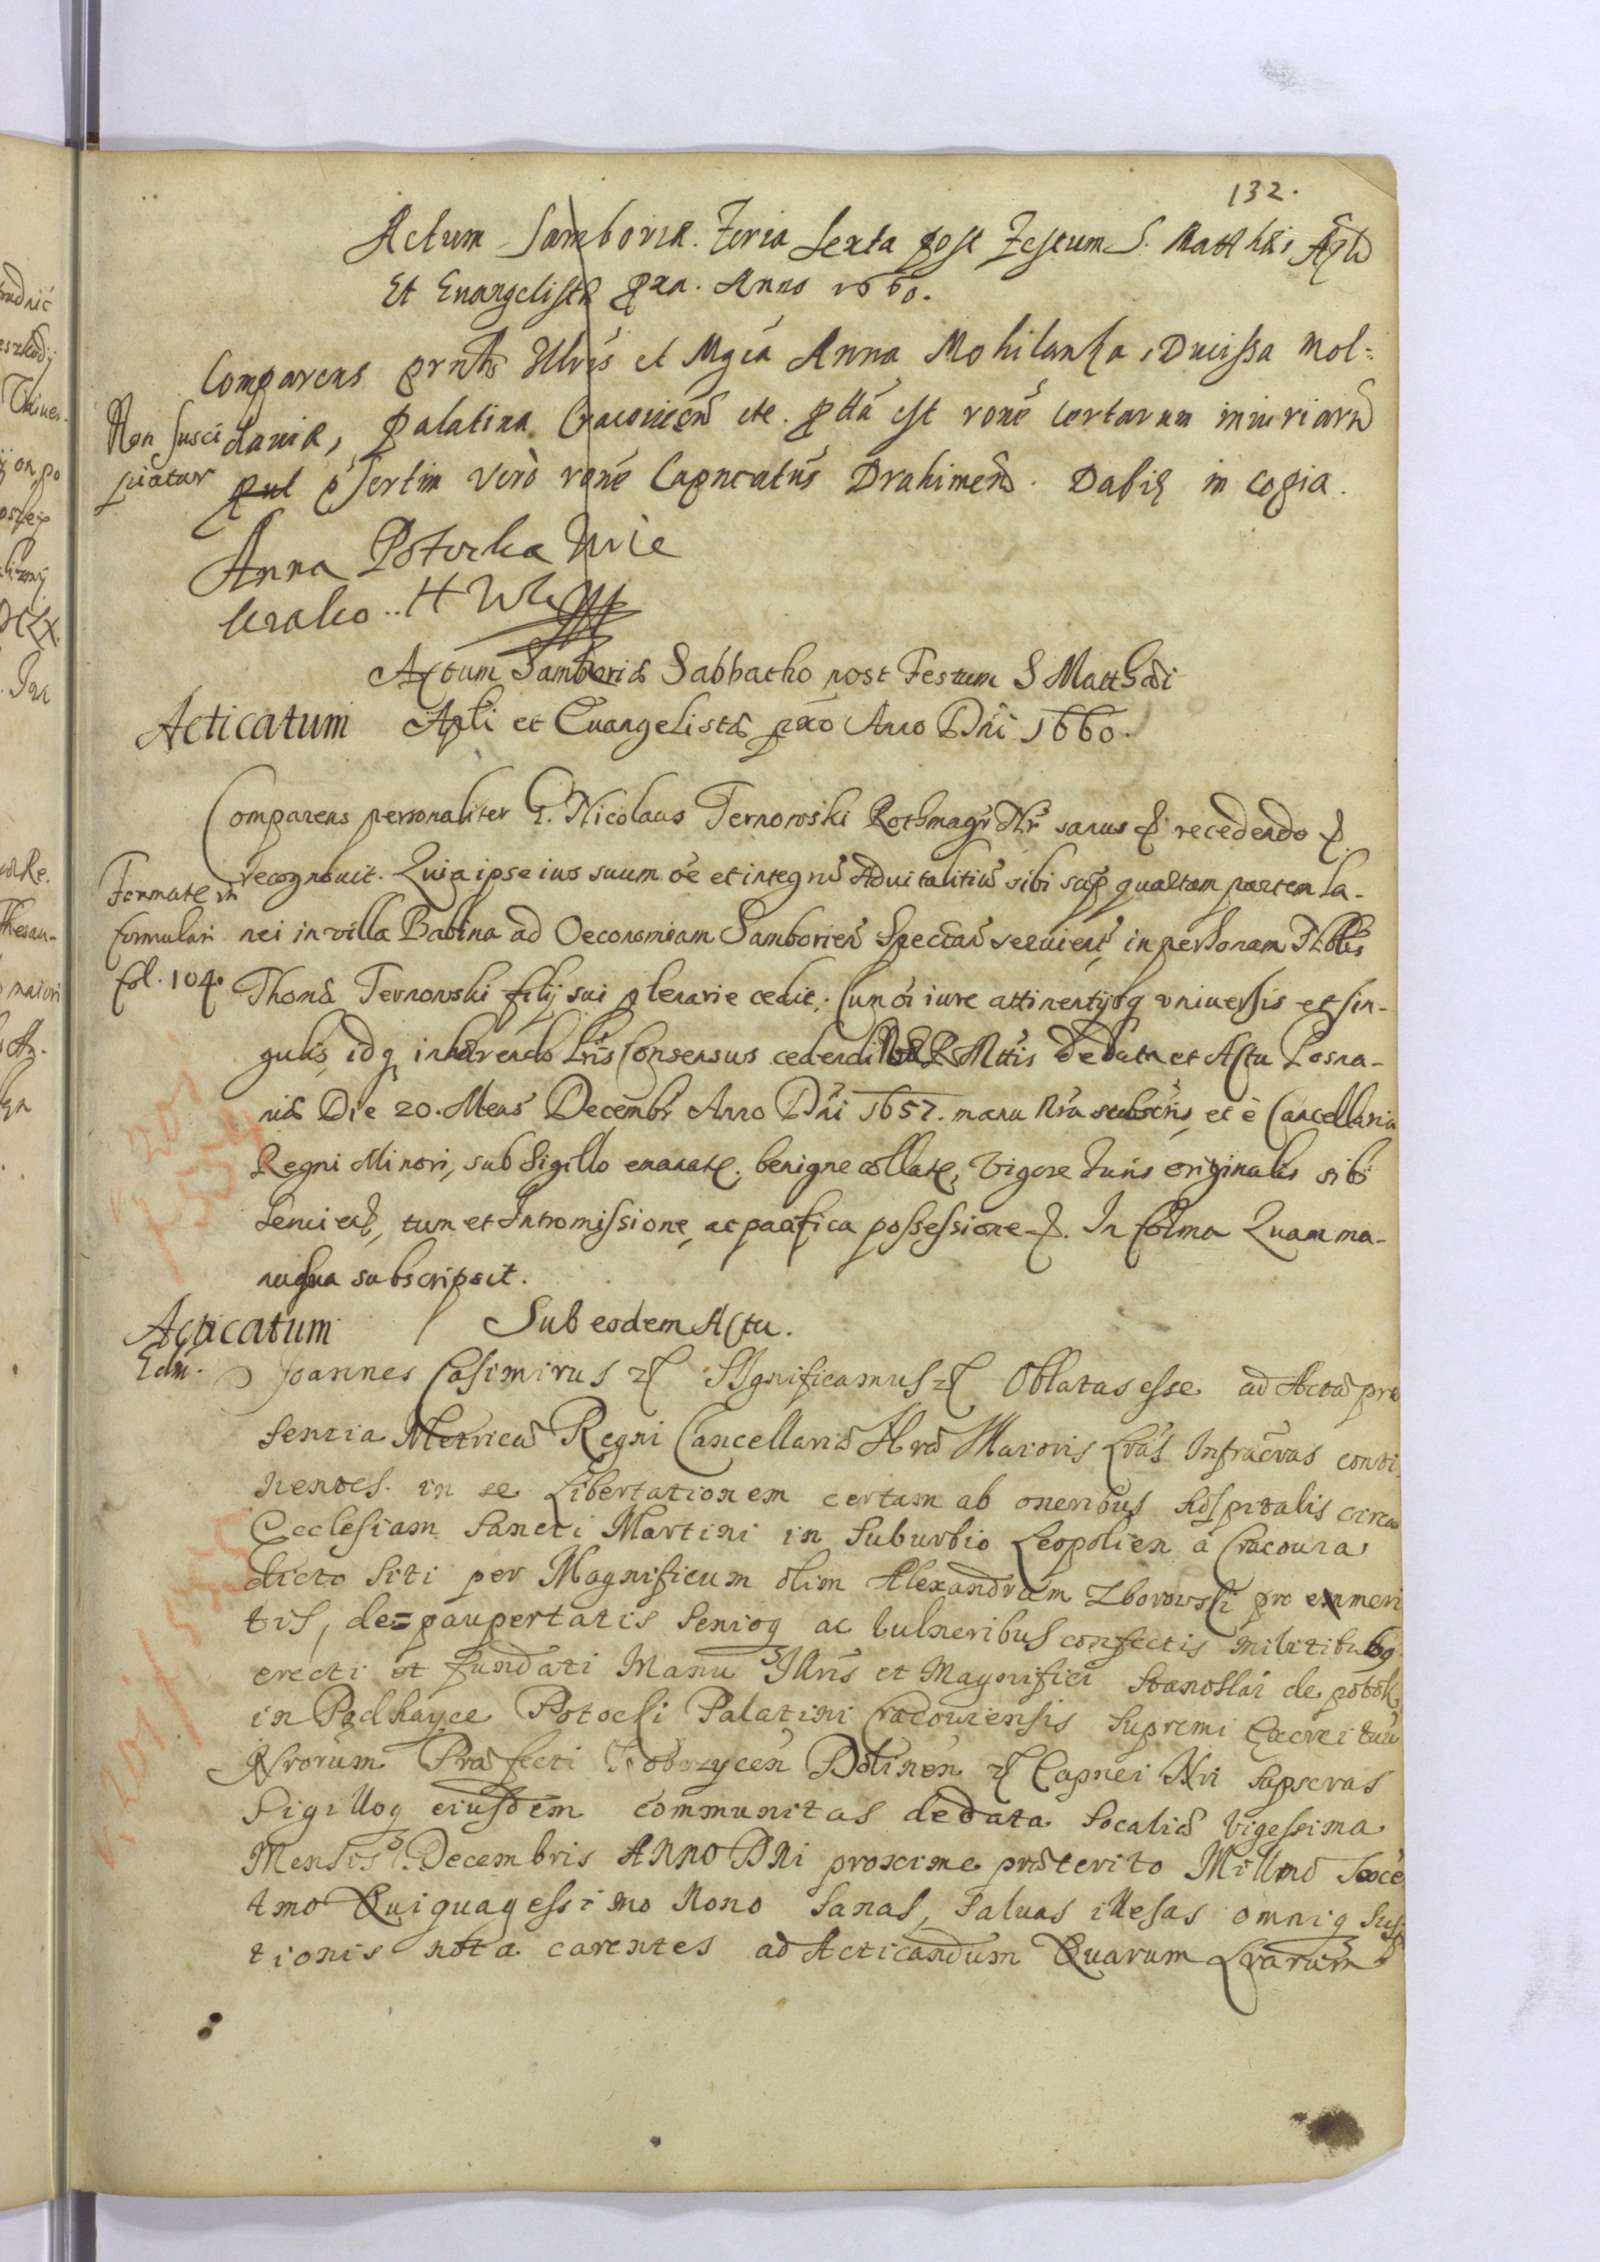 132.
Actum Samboriæ. Feria Sexta post Festum S. Matthæi Apli
Et Euangelistæ pxa. Anno 1660.
Comparens prntr Illris et Mgca Anna Mohilanka, Ducissa Mol=
Non susci
dauiæ, Palatina Cracouien etc. ptta est rone certarum iniuriaru
piatur
psertim verò rone Capncatus Drahimen. Dabit in copia.
Anna Potocka Wie
krako.. H
Actum Samboriæ Sabbatho post Festum S Matthæi
Acticatum
Apli et Euangelistæ pxo Anno Dni 1660.
Comparens personaliter G. Nicolaus Ternowski Rothmagr Nr sanus & recedendo &.
recognouit. Quia ipse ius suum oe et integru Aduitalitiu sibi sup quartam partem la-
Formatæ in
nei in villa Babina ad Oeconomiam Samborien Spectan seruiens, in personam Nblis
formulari
fol. 104.
Thomæ Ternowski filij sui plenarie cedit, Cum oi iure attinentijsq vniuersis et sin-
gulis, idq inhærendo Lris Consensus cedendi S R Mttis de data et Actu Posna-
niæ Die 20. Mens Decembr Anno Dni 1657. manu Nra subscris, et è Cancellaria
Regni Minori, sub Sigillo emanatæ, benigne collatæ, Vigore Juris originalis sibi
seruien, tum et Intromissione, ac pacifica possessione &. In cuius Quam ma-
nu sua subscripsit.
Acticatum
Sub eodem Actu.
Edm.
Joannes Casimirus &c Significamus &c Oblatas esse ad Acta præ
sentia Metrices Regni Cancellariæ Nræ Maioris Lras Infrascras conti
nentes in se Libertationem certam ab oneribus Hospitalis circa
Ecclesiam Sancti Martini in Suburbio Leopolien à Cracouia
dicto siti per Magnificum olim Alexandrum Zborowski pro emeri
tis, de=paupertatis senioq ac vulneribus confectis militibusq
erecti et fundati Manu Illris et Magnifici Stanoslai de potok
in Podhayce Potocki Palatini Cracouiensis Supremi Exercituu
Nrorum Præfecti Dolinen &c Capnei Nri Supscras
Sigilloq eiusdem communitas de data Socaliæ Vigessima
Mensis Decembris ANNO DNi proxime præterito Millmo Sexce
tmo Quiquagessimo Nono Sanas, Saluas illesas omniq Susp
tionis nota carentes ad Acticandum Quarum Lrarum